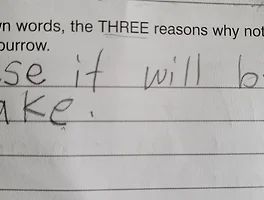 wn words, the THREE reasons why not
burrow.
se it will b
ake.